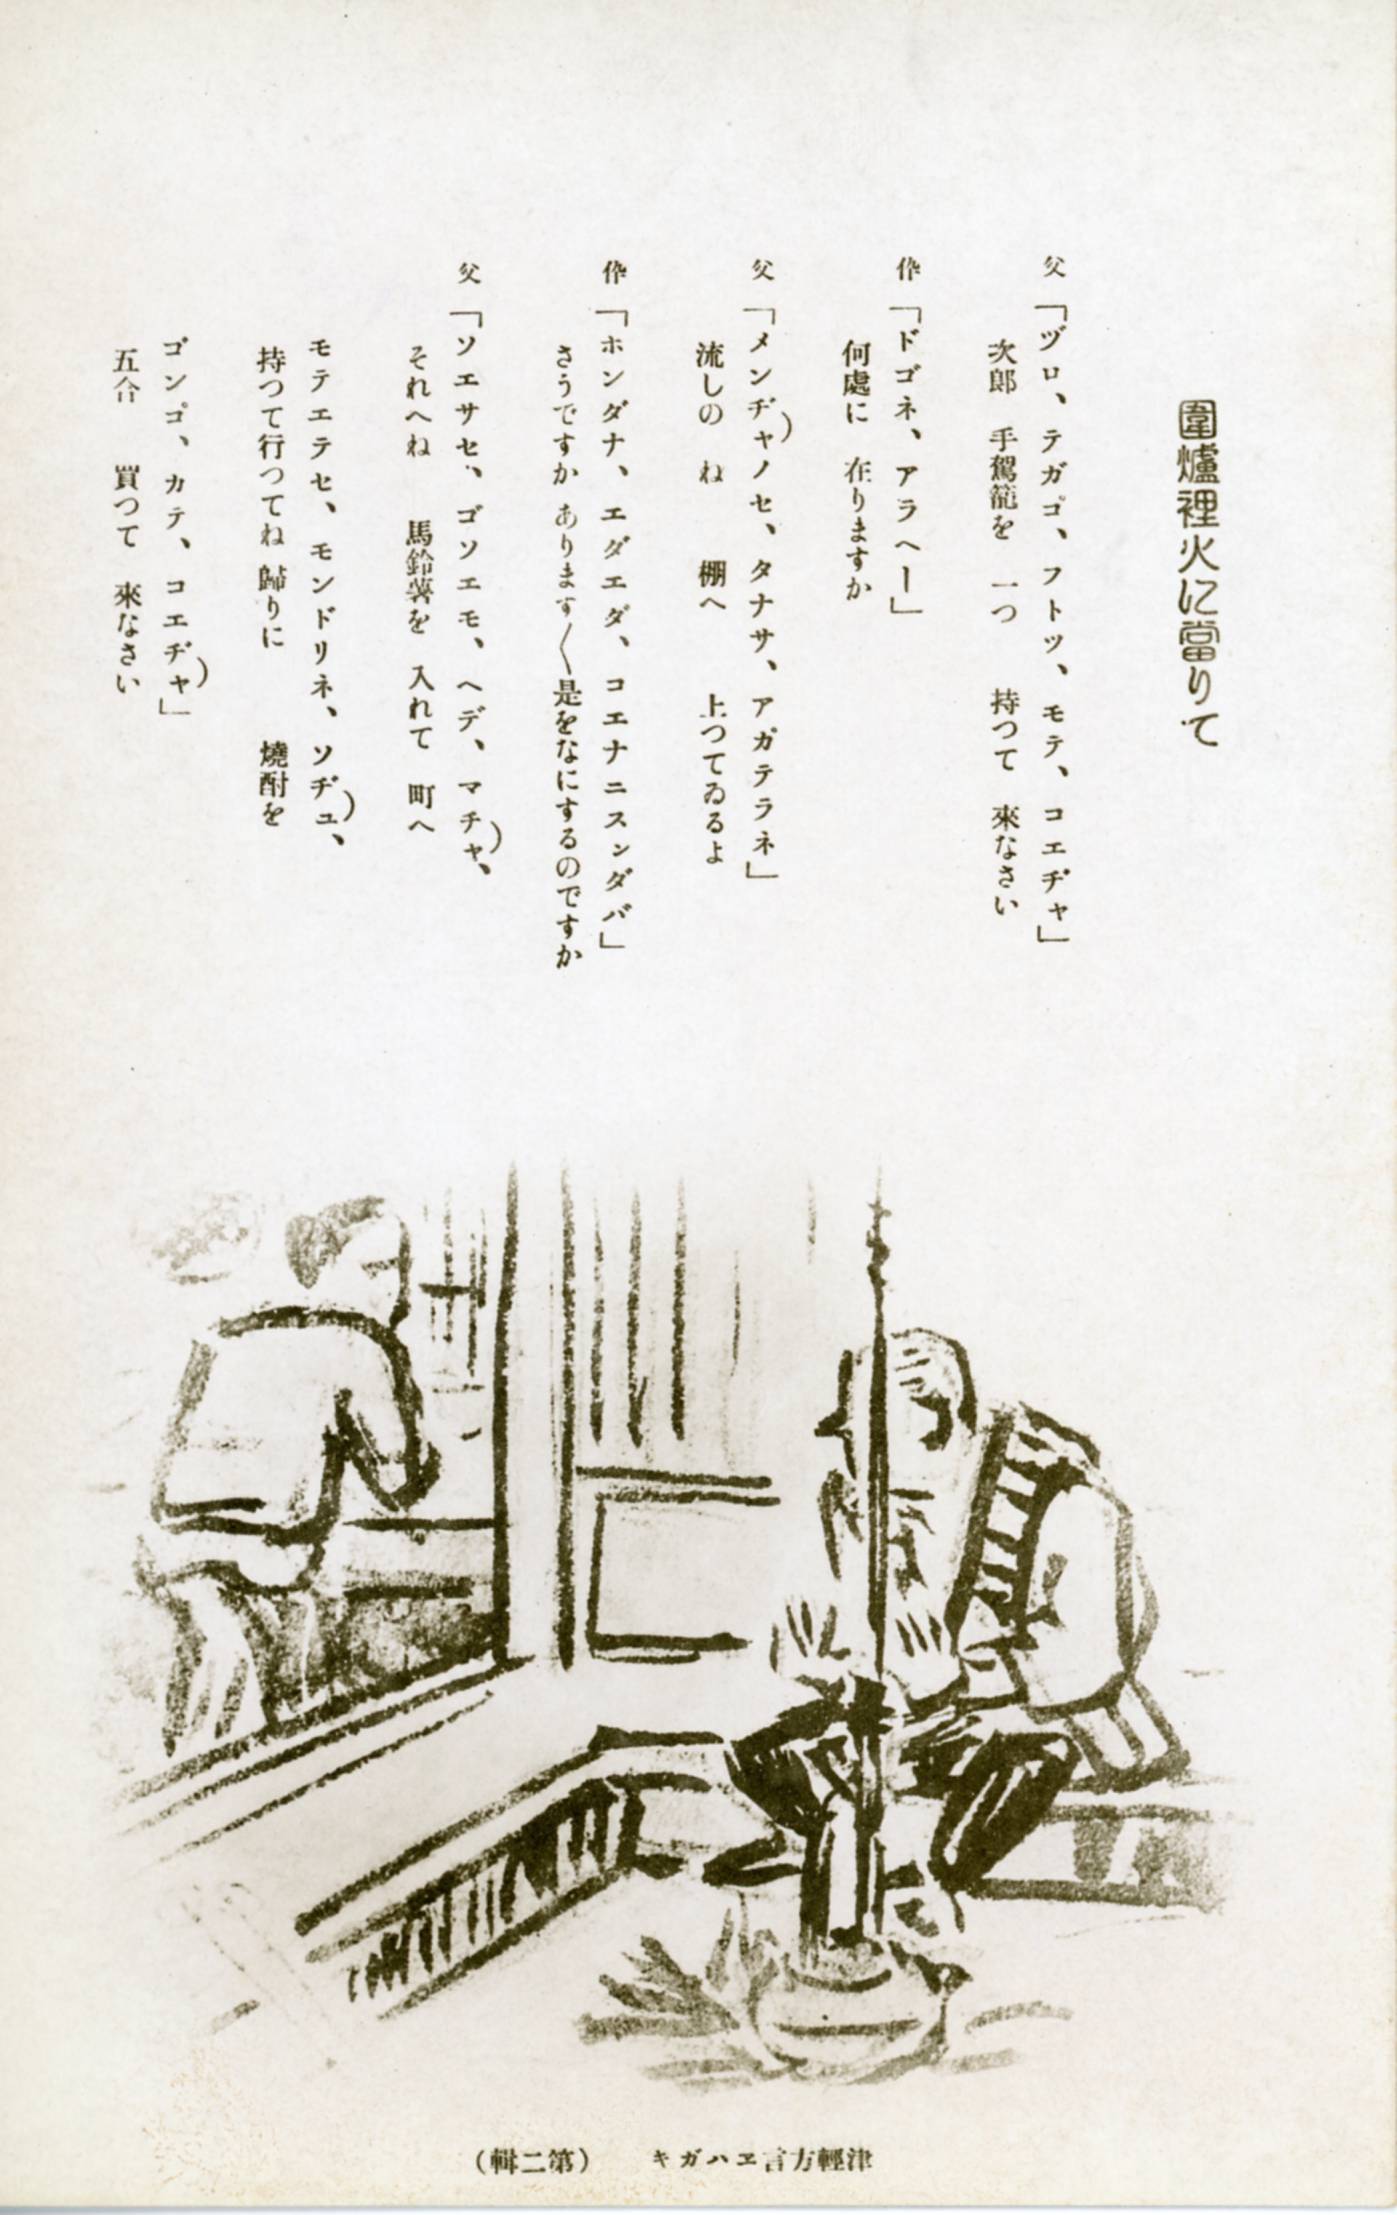 圍爐裡火に當りて
父「ヅロ、テガゴ、フトツ、モテ、コエヂャ」
次郞 手駕籠を 一つ 持つて 來なさい
伜「ドゴネ、アラヘー」
何處に 在りますか
父「メンヂャノセ、タナサ、アガテラネ」
流しの ね 棚へ 上つてゐるよ
伜「ホンダナ、エダエダ、コエナニスンダバ」
さうですか あります〱是をなにするのですか
父「ソエサセ、ゴソエモ、ヘデ、マチャ、
それへね 馬鈴薯を 入れて 町へ
モテエテセ、モンドリネ、ソヂュ、
持つて行つてね 歸りに 燒酎を
ゴンゴ、カテ、コエヂャ」
五合 買つて 來なさい
(輯二第) キガハヱ言方輕津